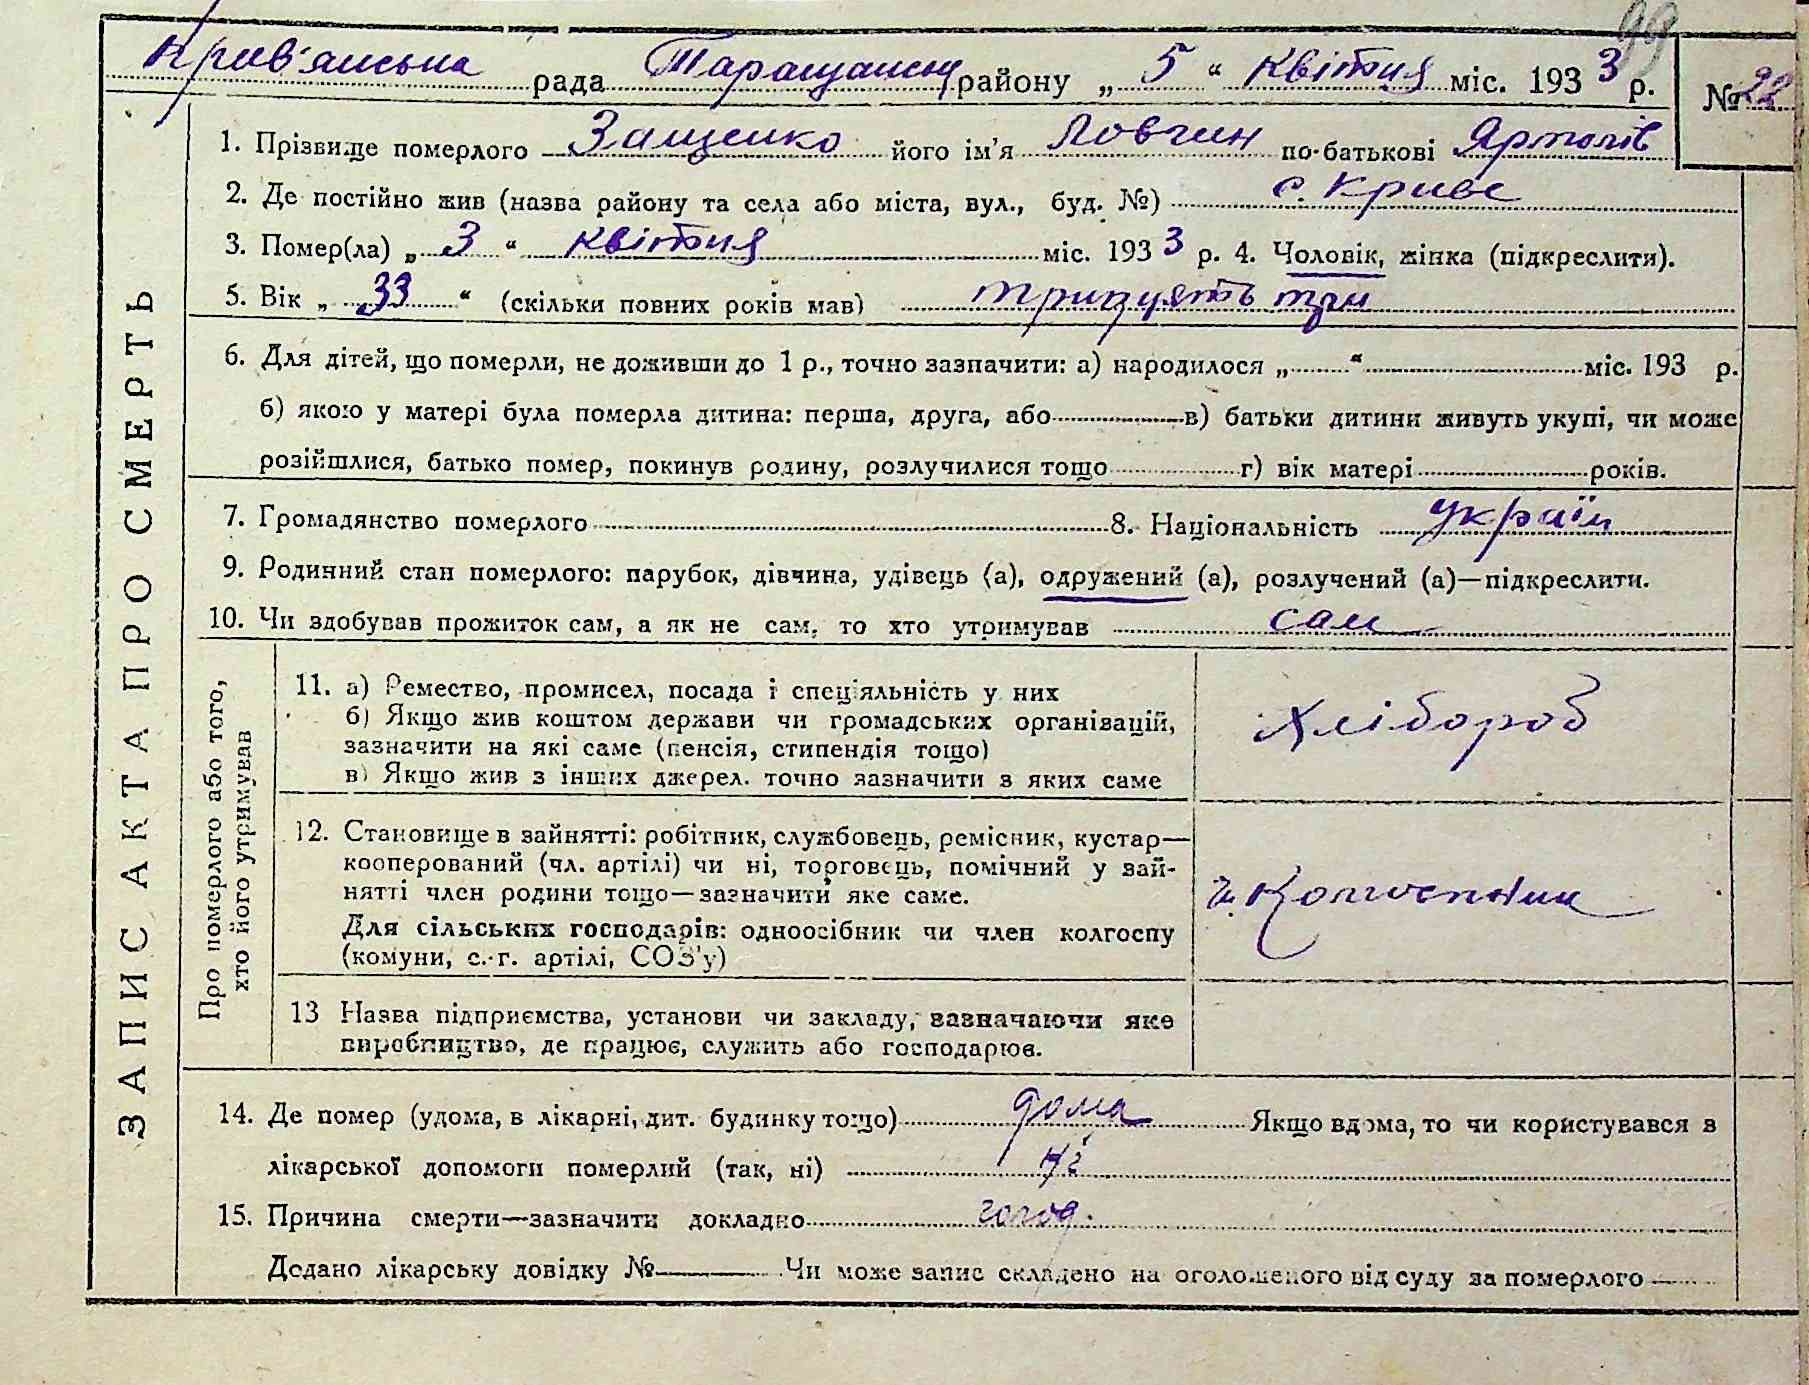 99
Крив'янська рада Таращанськ району „ 5 “ квітня міс. 193 3 р. № 22
ЗАПИС АКТА ПРО СМЕРТЬ
1. Прізвище померлого Защенко його ім'я Ловгин по-батькові
2. Де постійно жив (назва району та села або міста, вул., буд. №) с. Криве
3. Помер(ла) „ 3 “ квітня міс. 193 3 р. 4. Чоловік, жінка (підкреслити).
5. Вік „ 33 “ (скільки повних років мав) трицять три
6. Для дітей, що померли, не доживши до 1 р., точно зазначити: а) народилося „ “ міс. 193 р.
б) якою у матері була померла дитина: перша, друга, або в) батьки дитини живуть укупі, чи може
розійшлися, батько помер, покинув родину, розлучилися тощо г) вік матері років.
7. Громадянство померлого 8. Національність україн
9. Родинний стан померлого: парубок, дівчина, удівець (а), одружений (а), розлучений (а)—підкреслити.
10. Чи здобував прожиток сам, а як не сам, то хто утримував сам
Про померлого або того,
хто його утримував
11. а) Ремество, промисел, посада і спеціяльність у них
б) Якщо жив коштом держави чи громадських організацій,
зазначити на які саме (пенсія, стипендія тощо)
в) Якщо жив з інших джерел. точно зазначити з яких саме
Хлібороб
12. Становище в зайнятті: робітник, службовець, ремісник, кустар—
кооперований (чл. артілі) чи ні, торговець, помічний у зай-
нятті член родини тощо—зазначити яке саме.
Для сільських господарів: одноосібник чи член колгоспу
(комуни, с.-г. артілі, СОЗ'у)
Колгоспник
13 Назва підприємства, установи чи закладу, зазначаючи яке
виробництво, де працює, служить або господарює.
14. Де помер (удома, в лікарні, дит. будинку тощо) дома Якщо вдома, то чи користувався з
лікарської допомоги померлий (так, ні) ні
15. Причина смерти—зазначити докладно голод.
Додано лікарську довідку № Чи може запис складено на оголошеного від суду за померлого